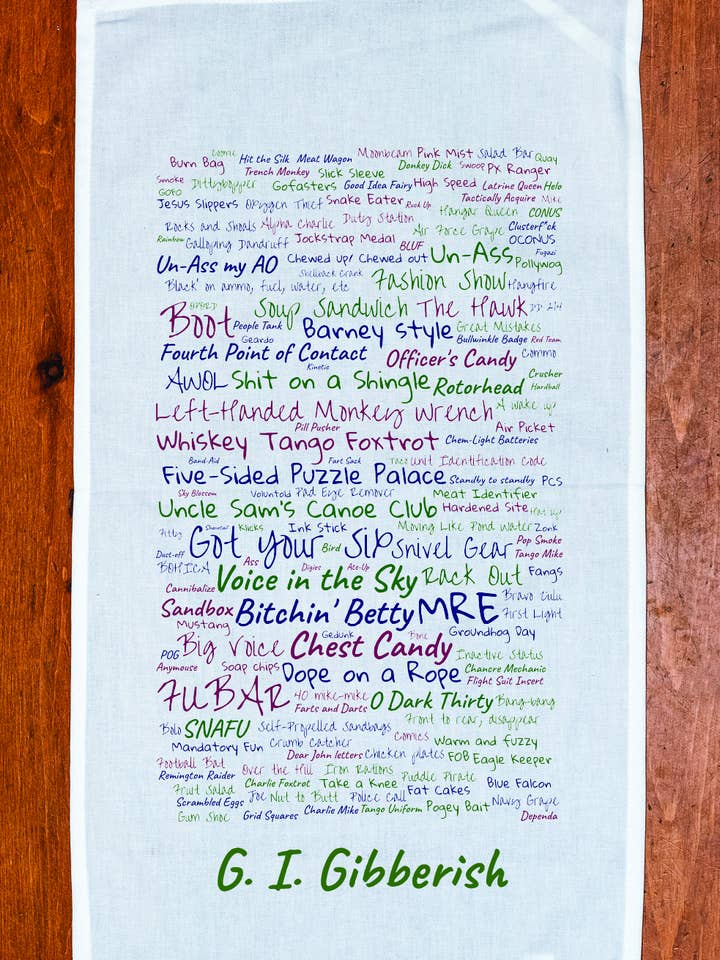 Cosmic Moonbeam Pink Mist Salad Bar Quay
Burn Bag Hit the Silk Meat Wagon Donkey Dick Swoop PX Ranger
Smoke Trench Monkey Slick Sleeve
GOFO Dittybopper Gofasters Good Idea Fairy High Speed Latrine Queen Helo
Jesus Slippers Oxygen Thief Snake Eater Ruck Up Tactically Acquire Mike
Rocks and Shoals Alpha Charlie Duty Station Hangar Queen CONUS
Rainbow Galloping Dandruff Jockstrap Medal BLUF Air Force Grape Clusterf*ck OCONUS
Un-Ass my AO Chewed up/ Chewed out Un-Ass Fugazi Pollywog
Shellback Crank
'Black' on ammo, fuel, water, etc Fashion Show Hangfire
Boot OPORD Soup Sandwich The Hawk DD 214
People Tank Barney style Great Mistakes
Geardo Bullwinkle Badge Red Team
Fourth Point of Contact Officer's Candy Commo
Kinetic Crusher
AWOL Shit on a Shingle Rotorhead Hardball
Left-Handed Monkey Wrench A wake up
Pill Pusher Air Picket
Whiskey Tango Foxtrot Chem-Light Batteries
Band-Aid Fart Sack Taco Unit Identification Code
Five-Sided Puzzle Palace Standby to standby PCS
Sky Blossom Voluntold Pad Eye Remover Meat Identifier
Uncle Sam's Canoe Club Hardened Site
Fitty Shavetail Klicks Ink Stick Moving Like Pond Water Zonk
Dust-off Got your six Bird Snivel Gear Pop Smoke Tango Mike
BOHICA Ass Digies Ate-Up
Cannibalize Voice in the Sky Rack Out Fangs
Sandbox Bitchin' Betty MRE Bravo Zulu First Light
Mustang Gedunk Bone Groundhog Day
POG Big Voice Chest Candy Inactive Status
Anymouse Soap Chips Dope on a Rope Chancre Mechanic Flight Suit Insert
FUBAR 40 mike-mike O Dark Thirty Bang-bang
Farts and Darts
Bolo SNAFU Self-Propelled Sandbags Front to rear, disappear
Mandatory Fun Crumb Catcher Comics Warm and fuzzy
Football Bat Dear John letters Chicken plates FOB Eagle Keeper
Remington Raider Over the Hill Iron Rations Puddle Pirate
Fruit Salad Charlie Foxtrot Take a Knee Fat Cakes Blue Falcon
Scrambled Eggs Joe Nut to Butt Police Call Navy Grape
Gum Shoe Grid Squares Charlie Mike Tango Uniform Pogey Bait Dependa
G. I. Gibberish